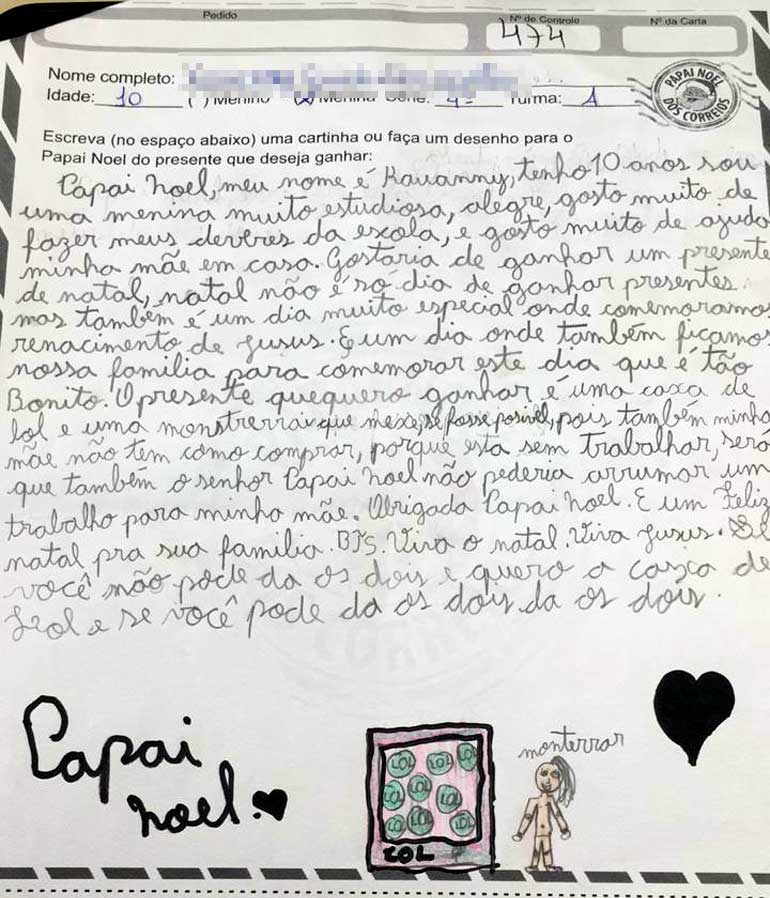 Pedido
Nº de Controle
Nº da Carta
474
Nome completo:
Idade: 10 ( ) Menino (x) Menina Série: 4ª Turma: 1
PAPAI NOEL
DOS CORREIOS
Escreva (no espaço abaixo) uma cartinha ou faça um desenho para o
Papai Noel do presente que deseja ganhar:
Papai Noel, meu nome é Kauanny, tenho 10 anos sou
uma menina muito estudiosa, alegre, gosto muito de
fazer meus deveres da escola, e gosto muito de ajuda
minha mãe em casa. Gostaria de ganhar um presente
de natal, natal não é só dia de ganhar presentes.
mas também é um dia muito especial onde comemoramos
renacimento de Jusus. E um dia onde também ficamos
nossa familia para comemorar este dia que é tão
Bonito. O presente quequero ganhar é uma caxa de
lol e uma que mexe, se fosse posivel, pois também minha
mãe não tem como comprar, porque esta sem trabalhar, será
que também o senhor Papai Noel não pederia arrumar um
trabalho para minha mãe. Obrigada Papai Noel. E um Feliz
natal pra sua familia. BJS. Viva o natal. Viva Jusus. Se
você não pode da os dois e quero a caxca de
Leol e se você pode da os dois da os dois.
Papai
Noel.
monterrar
LOL LOL LOL
LOL LOL LOL
LOL LOL LOL
LOL